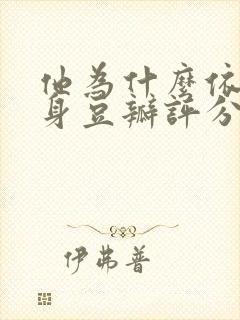 他為什麼依
身豆瓣評分
伊弗普